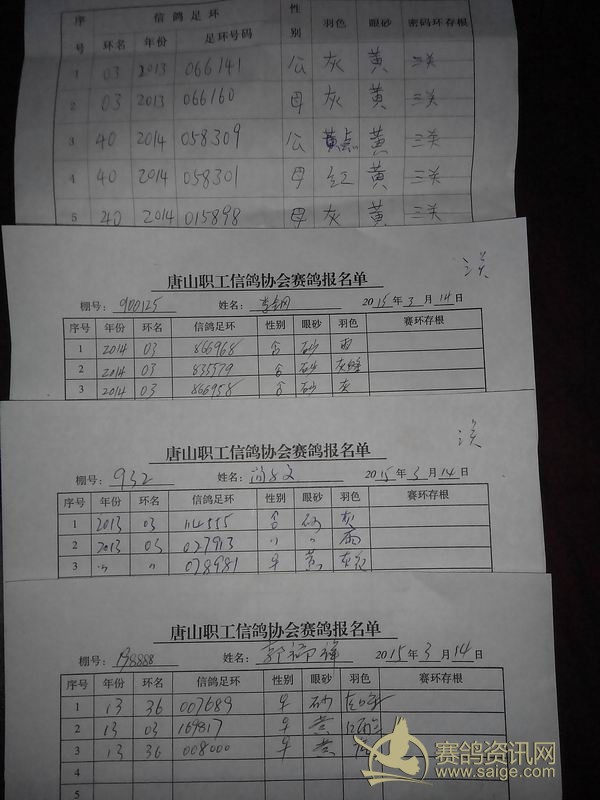 序号 信鸽足环 性别 羽色 眼砂 密码环存根
环名 年份 足环号码
1 03 2013 066141 公 灰 黄 三关
2 03 2013 066160 母 灰 黄 三关
3 40 2014 058309 公 黄点 黄 三关
4 40 2014 058301 母 红 黄 三关
5 40 2014 015898 母 灰 黄 三关
唐山职工信鸽协会赛鸽报名单
棚号: 900125 姓名: 2015年3月14日
序号 年份 环名 信鸽足环 性别 眼砂 羽色 赛环存根
1 2014 03 866968 砂 雨
2 2014 03 835579 砂
3 2014 03 866958 砂 灰
唐山职工信鸽协会赛鸽报名单
棚号: 932 姓名: 2015年3月14日
序号 年份 环名 信鸽足环 性别 眼砂 羽色 赛环存根
1 2013 03 114555 砂 灰
2 2013 03 027913 〃 〃 雨
3 〃 〃 078981 黄
唐山职工信鸽协会赛鸽报名单
棚号: 198888 姓名: 2015年3月14日
序号 年份 环名 信鸽足环 性别 眼砂 羽色 赛环存根
1 13 36 007689 砂
2 13 03 169817 黄
3 13 36 008000 黄
4
5
赛鸽资讯网
www.saige.com